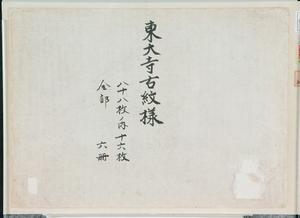 東大寺古紋様
八十八枚ノ内十六枚
全部 六冊